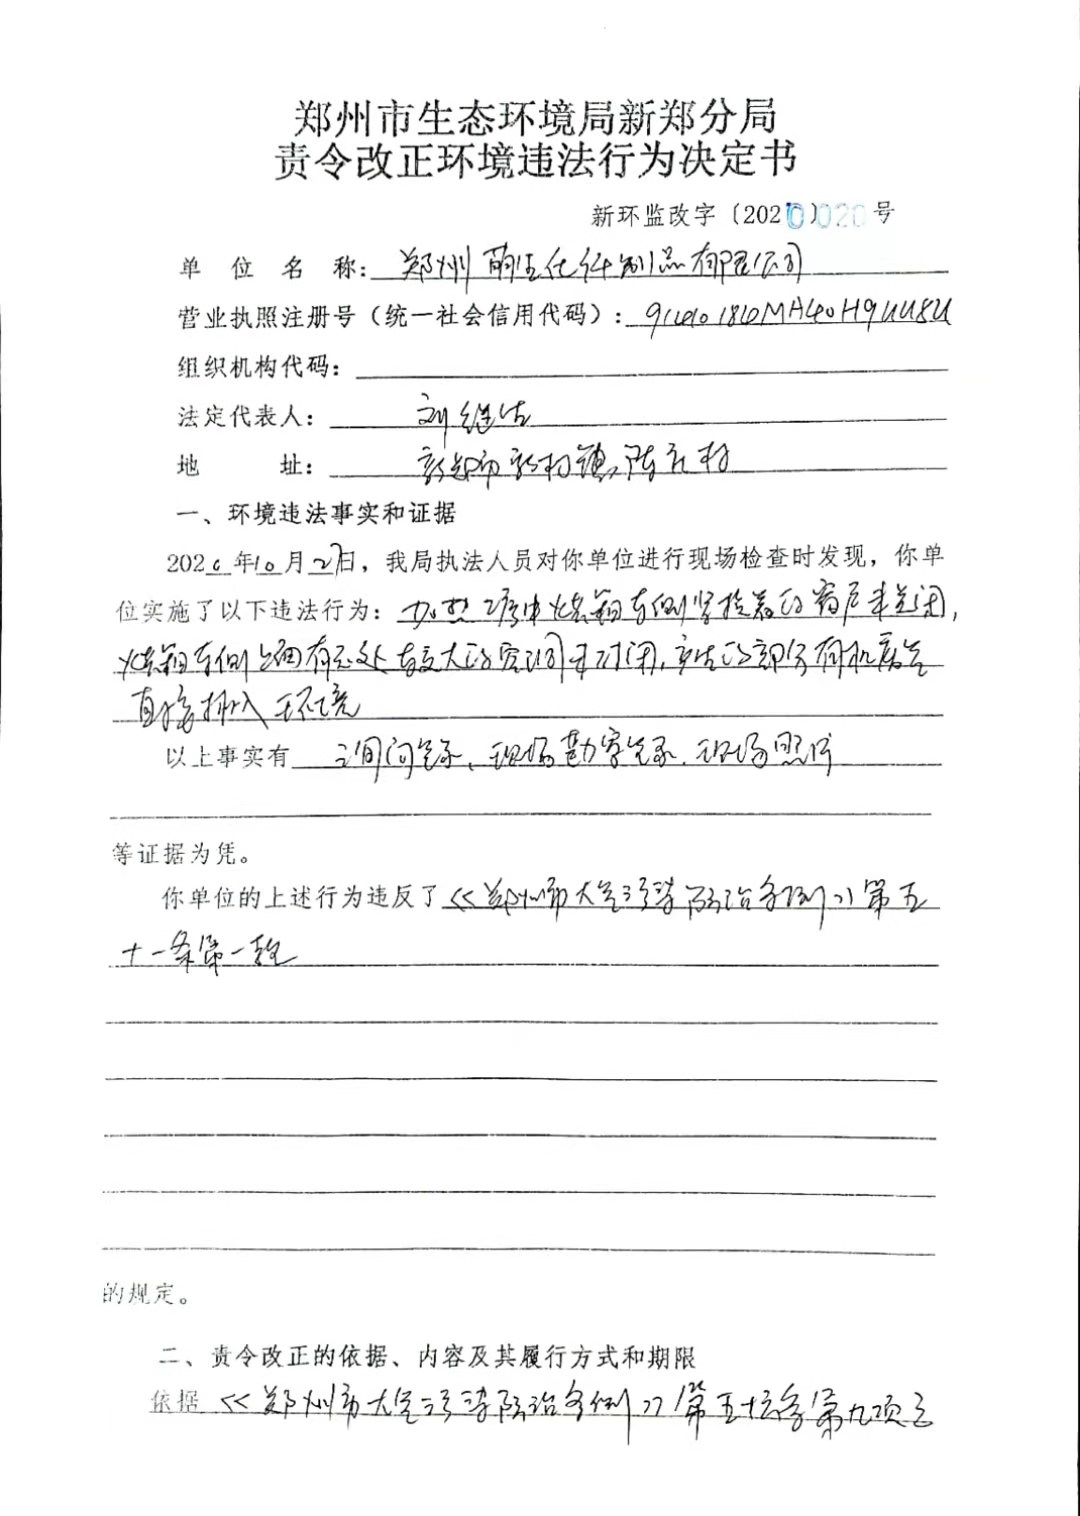 郑州市生态环境局新郑分局
责令改正环境违法行为决定书
新环监改字〔2020〕020号
单位名称：郑州萌生化纤制品有限公司
营业执照注册号（统一社会信用代码）：
组织机构代码：
法定代表人：刘继
地址：新郑市新村镇
一、环境违法事实和证据
2020年10月27日，我局执法人员对你单位进行现场检查时发现，你单
位实施了以下违法行为：加热工序中烘箱东侧 的窗户未关闭，
烘箱东侧上面有 处较大的空洞未封闭，产生的部分有机废气
直接排入环境
以上事实有 询问笔录、现场勘察笔录、现场照片
等证据为凭。
你单位的上述行为违反了《郑州市大气污染防治条例》第五
十一条第一款
的规定。
二、责令改正的依据、内容及其履行方式和期限
依据《郑州市大气污染防治条例》第五十 条第九项之